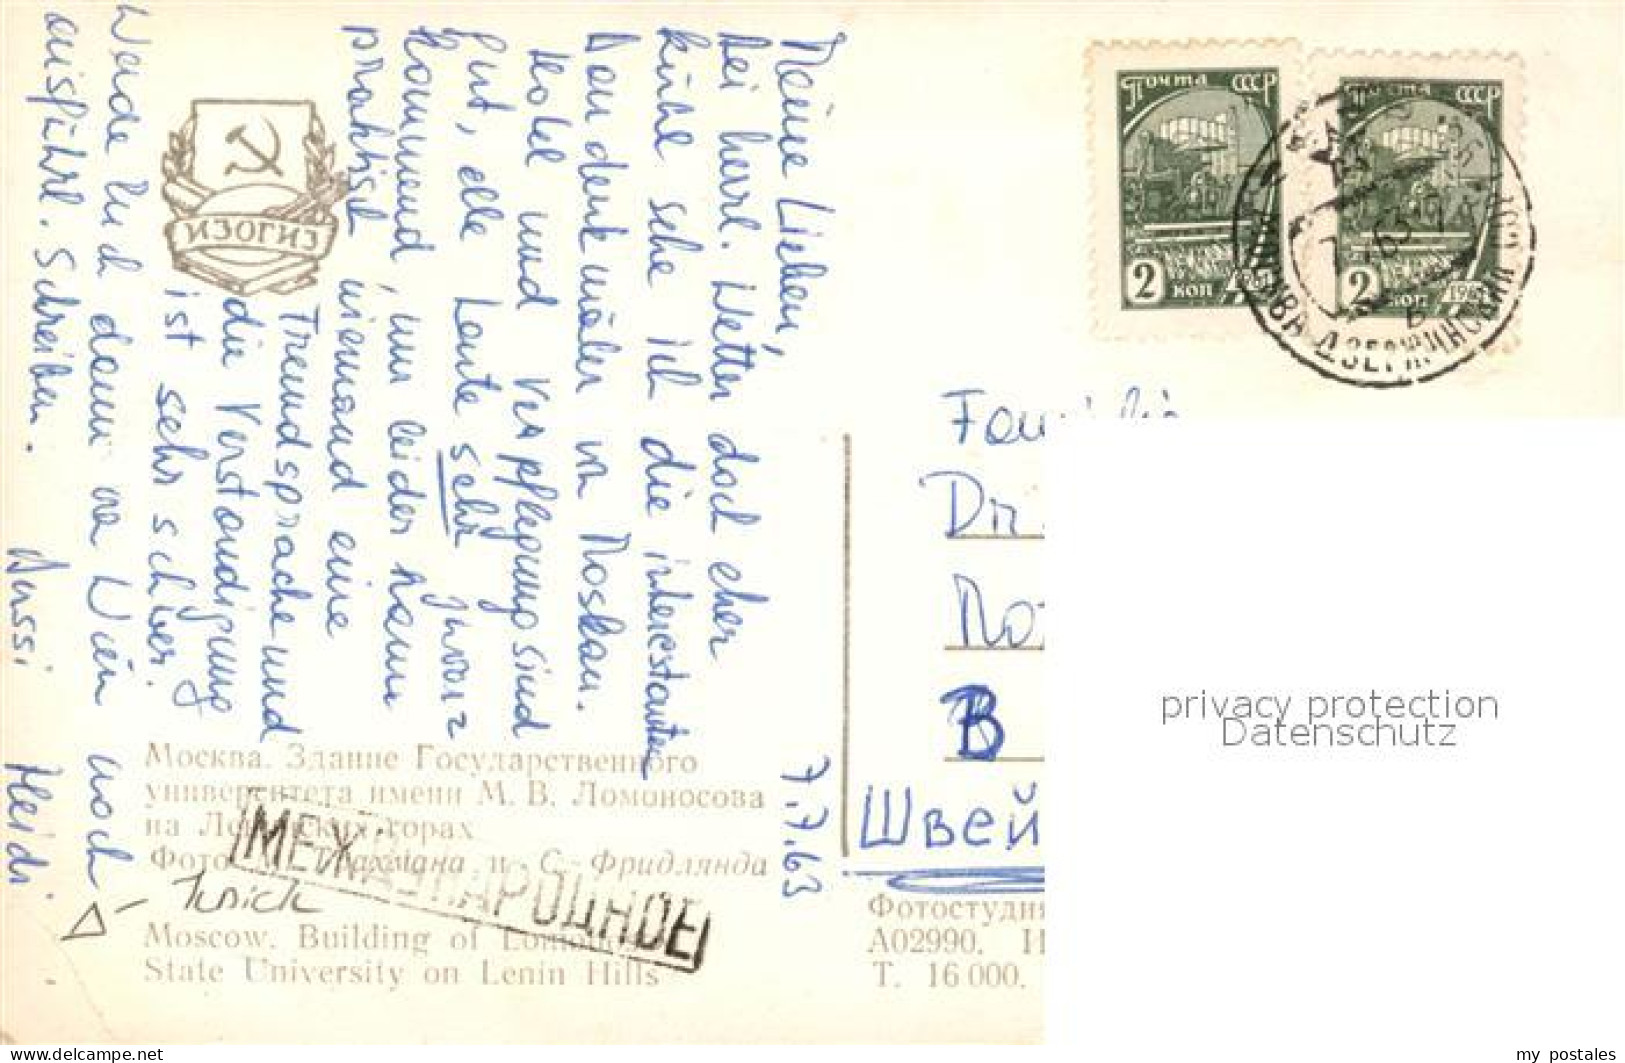 Meine Lieben,
bei herrl. Wetter doch eher
kühl sehe ich die interessanten
Baudenkmäler in Moskau.
Hotel und Verpflegung sind
gut, alle Leute sehr zwar
kommend, nur leider kann
praktisch niemand eine
Fremdsprache und
die Verständigung
ist sehr schwer.
Werde Euch dann in Wien noch
ausführl. Schreiben.
Bussi Heidi
7.7.63
ИЗОГИЗ
Москва. Здание Государственного
университета имени М. В. Ломоносова
на Ленинских горах
Фото и С. Фридлянда
МЕЖДУНАРОДНОЕ
Moscow. Building of Lomonosov
State University on Lenin Hills
Почта СССР
2 коп
Почта СССР
2 коп
МОСКВА ДЗЕРЖИНСКИЙ
63
Dr
В
Швей
Фотостудия
А02990. И
Т. 16 000.
privacy protection
Datenschutz
www.delcampe.net
my_postales